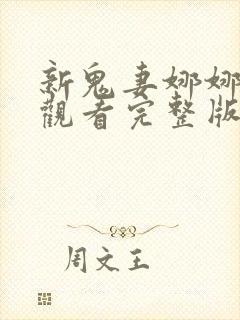 新鬼妻娜娜
觀看完整版
周文王